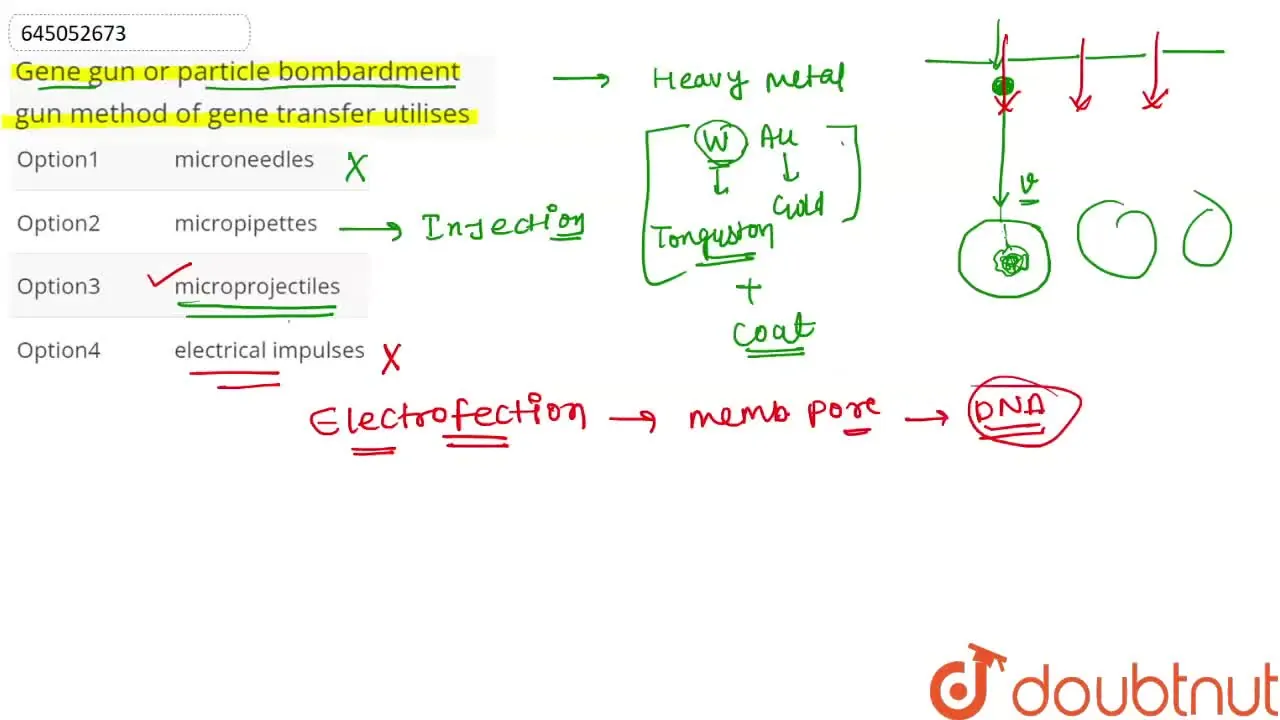 645052673
Gene gun or particle bombardment
gun method of gene transfer utilises
Option1 microneedles X
Option2 micropipettes → Injection
Option3 microprojectiles
Option4 electrical impulses X
→ Heavy metal
W Au
Gold
Tonguston
+
Coat
v
Electrofection → memb pore → DNA
doubtnut